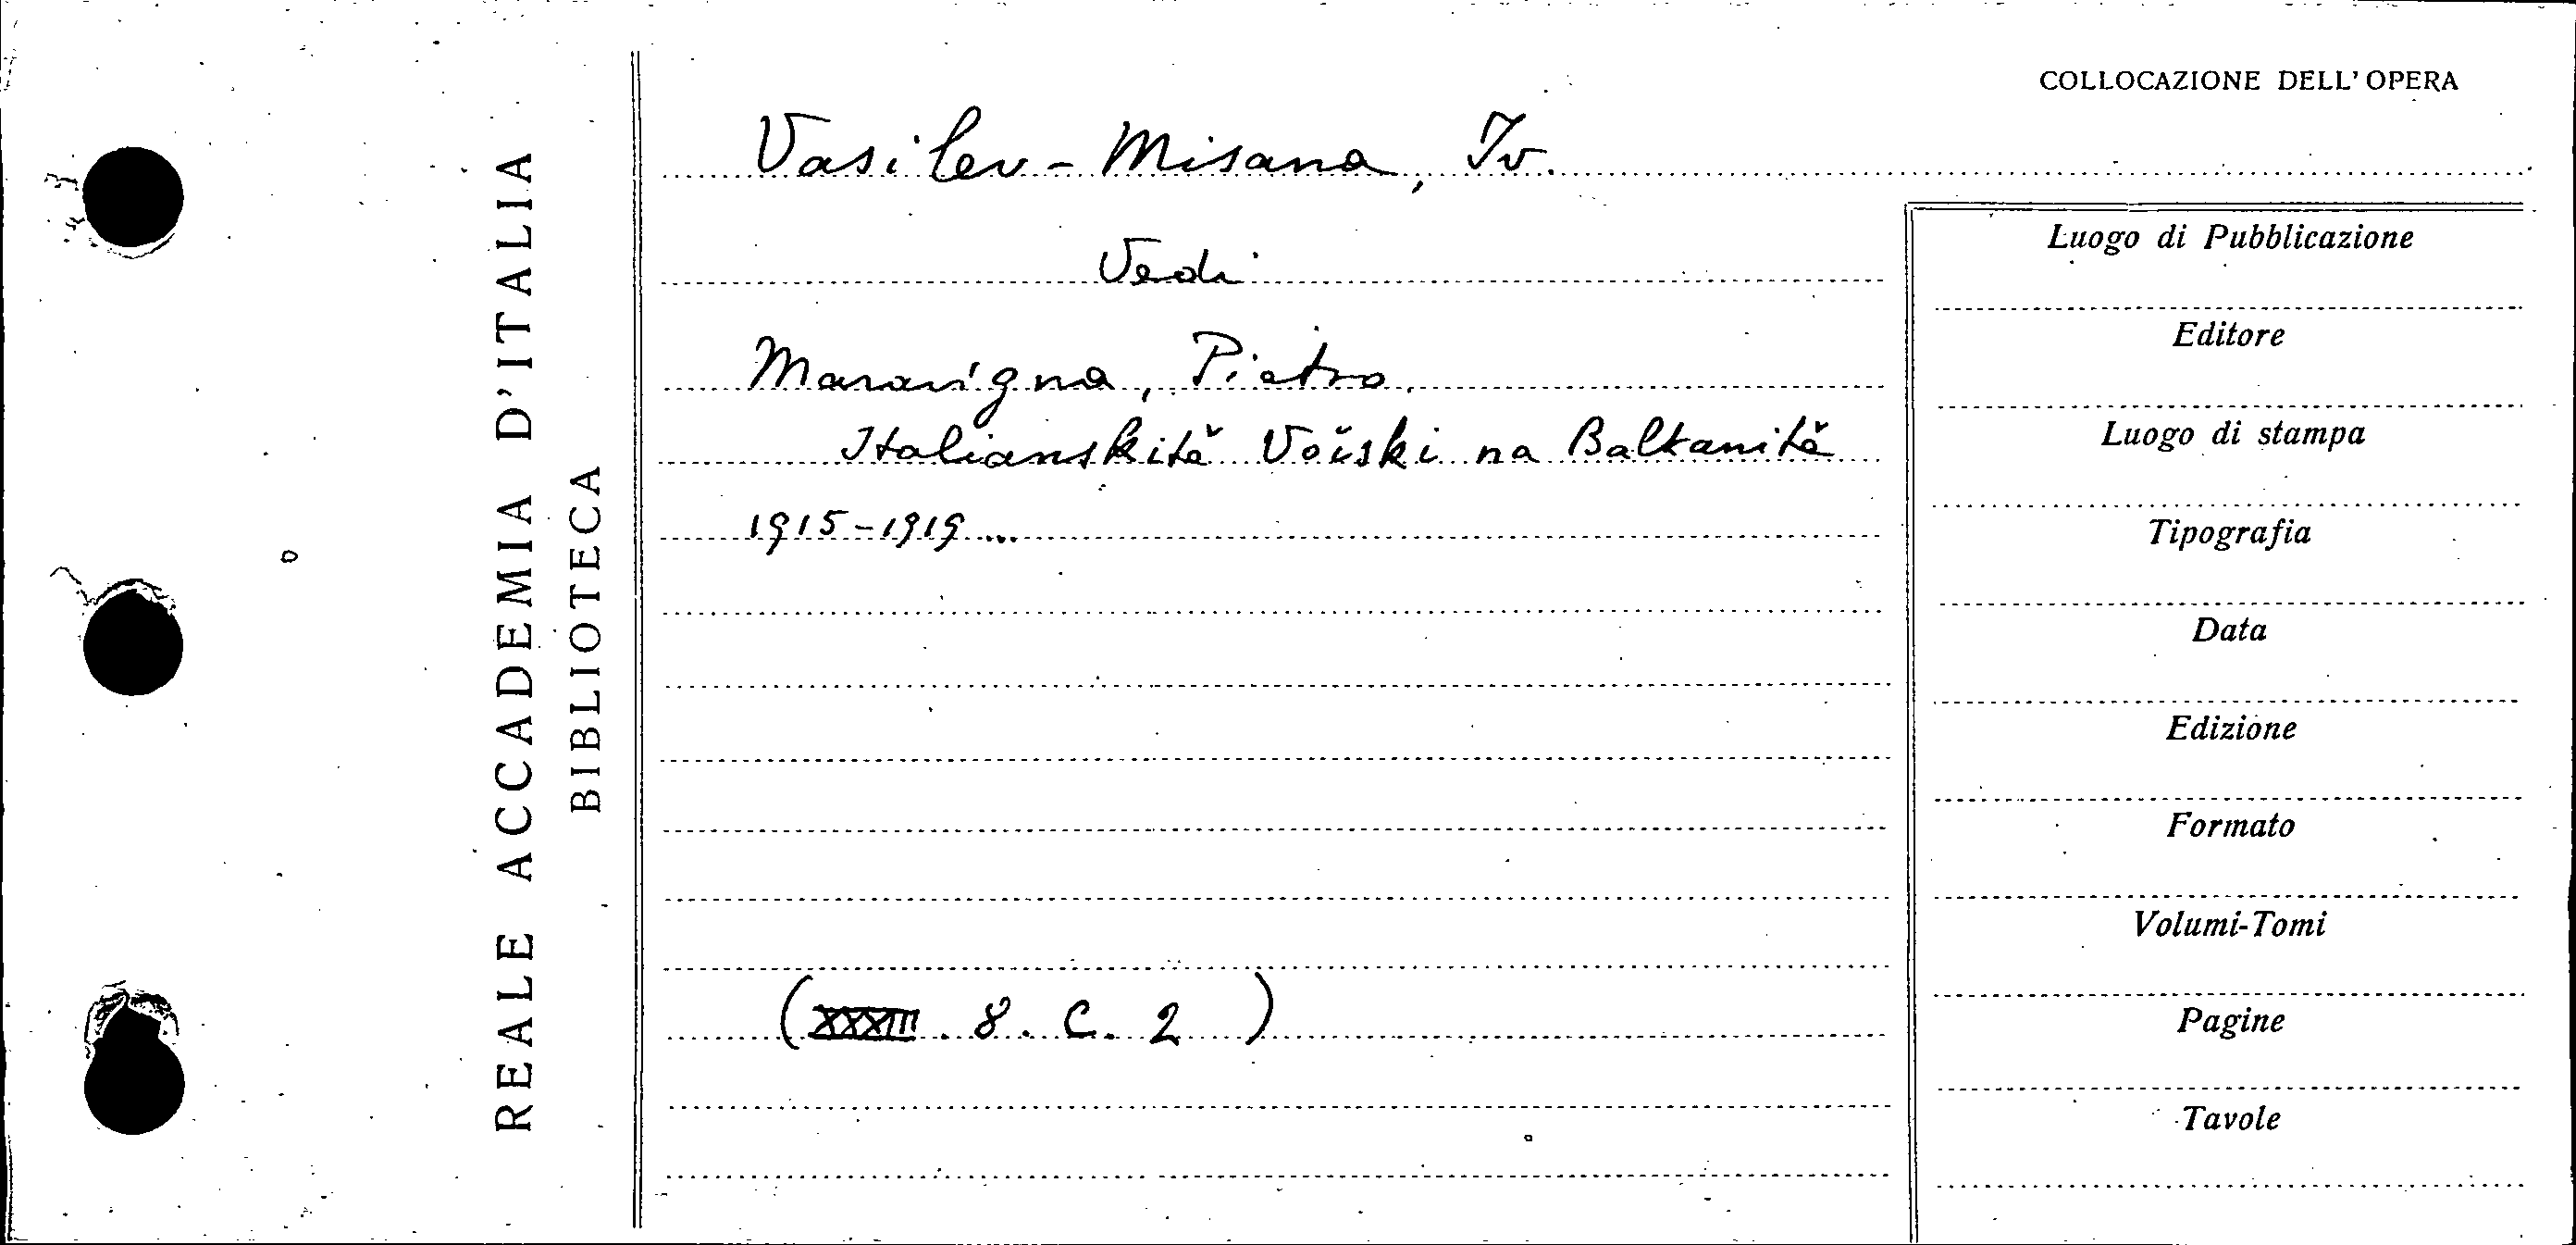 COLLOCAZIONE DELL'OPERA
REALE ACCADEMIA D'ITALIA
BIBLIOTECA
Vasilev - Misana, Iv.
Vedi
Maravigna, Pietro.
Italianskitě Voĭski na Balkanitě
1915-1919 ...
(XXXIII. 8. C. 2 )
Luogo di Pubblicazione
Editore
Luogo di stampa
Tipografia
Data
Edizione
Formato
Volumi-Tomi
Pagine
Tavole